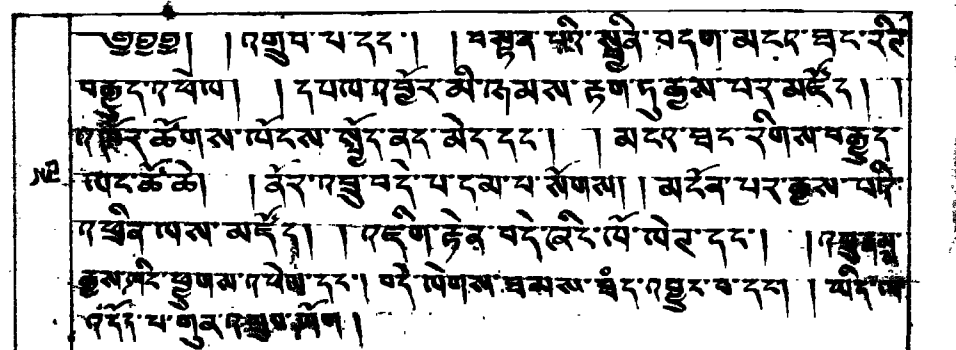 ༄༅༅། །འགྲུབ་པ་དང་། །བསྟན་པའི་སྦྱིན་བདག་མངའ་ཐང་
བརྒྱད་འཕེལ། །དཔལ་འབྱོར་མི་ཉམས་རྟག་ཏུ་རྒྱས་པར་མཛོད། །
འཁོར་ཚོགས་ལོངས་སྤྱོད་ནད་མེད་དང་། །མངའ་ཐང་རིགས་བརྒྱུད་
ཡང་ཚེ་ཆེ། །ནོར་འབྲུ་བདེ་པ་དམ་པ་སོགས། །མངོན་པར་རྒྱས་པའི་
འཕྲིན་ལས་མཛོད། །འཇིག་རྟེན་བདེ་ཞིང་ལོ་ལེགས་དང་། །
རྒྱས་ཤིང་ཕྱུགས་འཕེལ་དང་། བདེ་ལེགས་ཐམས་ཅད་འབྱུང་བ་དང༌། །ཡིད་ལ་
འདོད་པ་ཀུན་འགྲུབ་ཤོག །